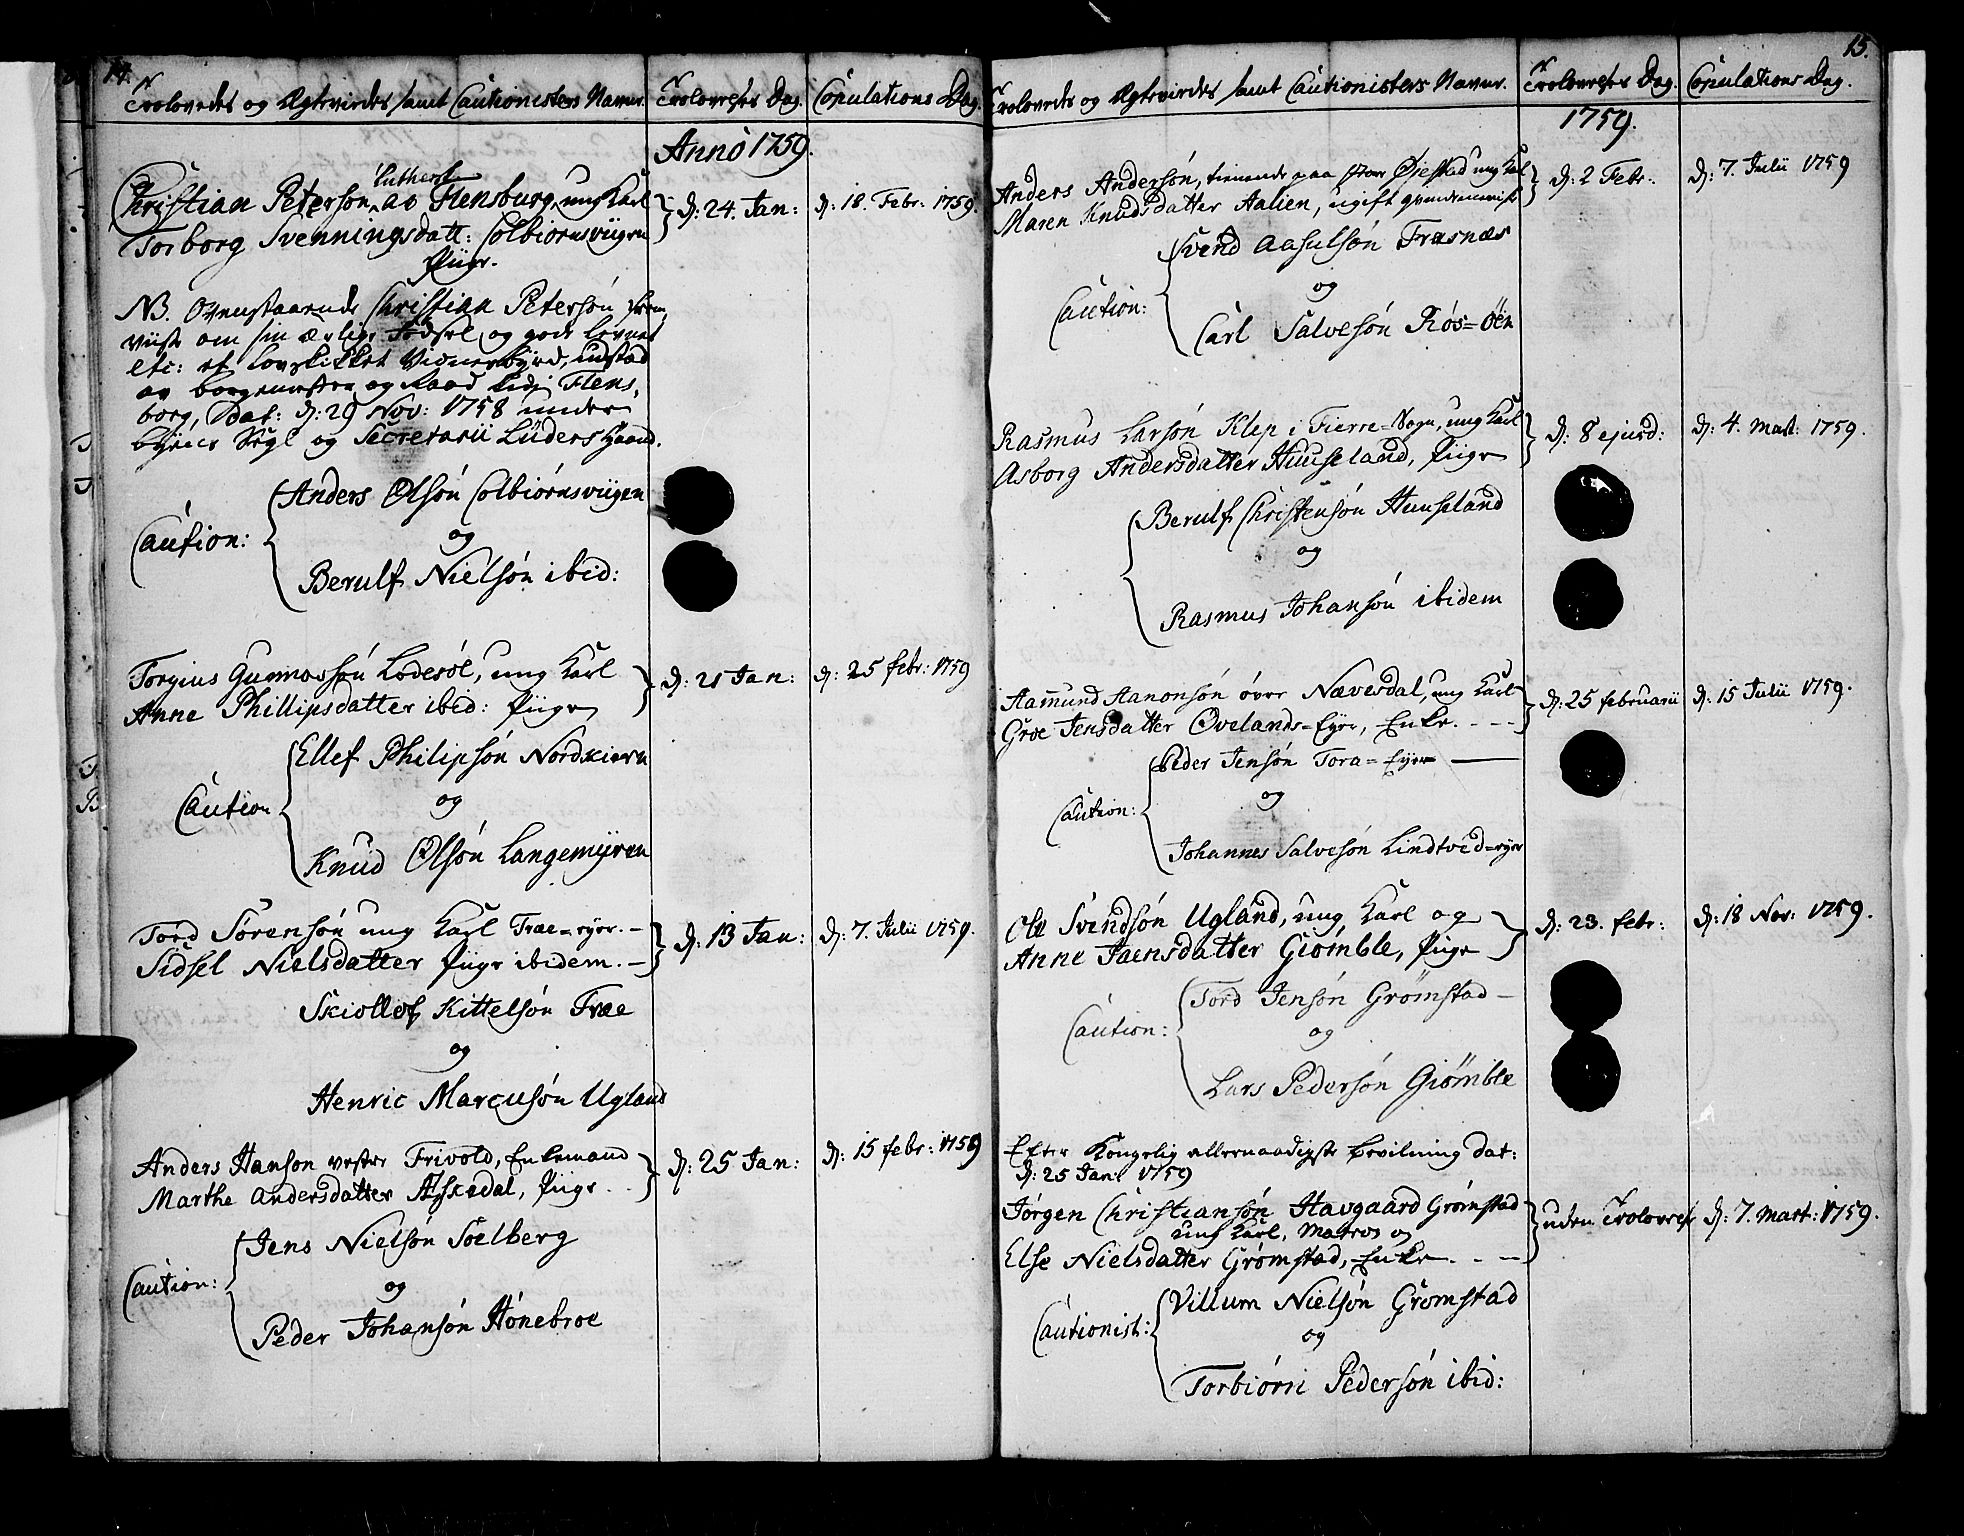 14.
Trolovedes og Ægtevirdes samt Cautionisters Navne. Trolovelses Dag. Copulations Dag.
Anno 1759.
Luthersk
Christian Peterson, av Flensburg, ung Karl
Torborg Svenningsdatt: Colbiørnsviigen
Piige.
d: 24. Jan: d: 18. Febr: 1759.
NB. Ovenstaaende Christian Petersón
viiste om sin ærlige Fødsel og gode Levnet
etc: et lovskikket Vidnesbyrd, udstæd
av borgemester og Raad udj Flens-
borg, Dat: d: 29 Nov: 1758 under
byens Segl og Secretarii Lüders Haand.
Caution:
Anders Olsón Colbiørnsviigen
og
Berulf Nielsón ibid:
Torgius Gunnarsón Lodesøl, ung Karl
Anne Phillipsdatter ibid: Piige
d: 21 Jan: d: 25 febr: 1759
Caution
Ellef Philipsón Nordkiern
og
Knud Olsón Langemyren
Tord Sørensón ung Karl Træe-eyer. —
Sidsel Nielsdatter Piige ibidem. —
d: 13 Jan: d: 7. Julii 1759.
Skiollef Kittelsón Træe
og
Henric Marcusón Ugland
Anders Hanson vestre Frivold, Enkemand
Marthe Andersdatter Æskedal, Piige.
d: 25 Jan: d: 15 febr: 1759
Caution:
Jens Nielsón Soelberg
og
Peder Johansón Hónebroe
15.
Trolovedes og Ægtevirdes samt Cautionisters Navne. Trolovelses Dag. Copulations Dag.
1759.
Anders Andersón, tienende paa store Øiestad ung Karl
Maren Knudsdatter Aalien, ugift qvindemenniske
d: 2 Febr: d: 7. Julii 1759
Caution:
Svend Aasulsón Fræsnæs
og
Carl Salvesón Rós=öen
Rasmus Larsón Klep i Fierre-Sogn, ung Karl
Asborg Andersdatter Huuseland, Piige
d: 8 ejusd: d: 4. Mart: 1759.
Berulf Christensón Huuseland
og
Rasmus Johansón ibidem
Aamund Aanonsón óvre Nævesdal, ung Karl
Groe Jensdatter Øvelands-Eyre, Enke.
d: 25 februarii d: 15 Julii 1759.
Caution:
Peder Jensón Tora-Eyre
og
Johannes Salvesón Lindtved-eyer
Ole Svendsón Ugland, ung Karl og
Anne Jaensdatter Giómble, Piige
d: 23. febr: d: 18 Nov: 1759.
Caution:
Tord Jensón Grømstad —
og
Lars Pedersón Giómble
Efter Kongelig allernaadigste bevilning dat:
d: 25 Jan: 1759
Jórgen Christiansón Havgaard Grømstad
ung Karl, Matros og
Else Nielsdatter Grømstad, Enke.
uden Trolovelse d: 7. Mart: 1759.
Cautionist:
Villum Nielsón Grømstad
og
Torbiórn Pedersón ibid: